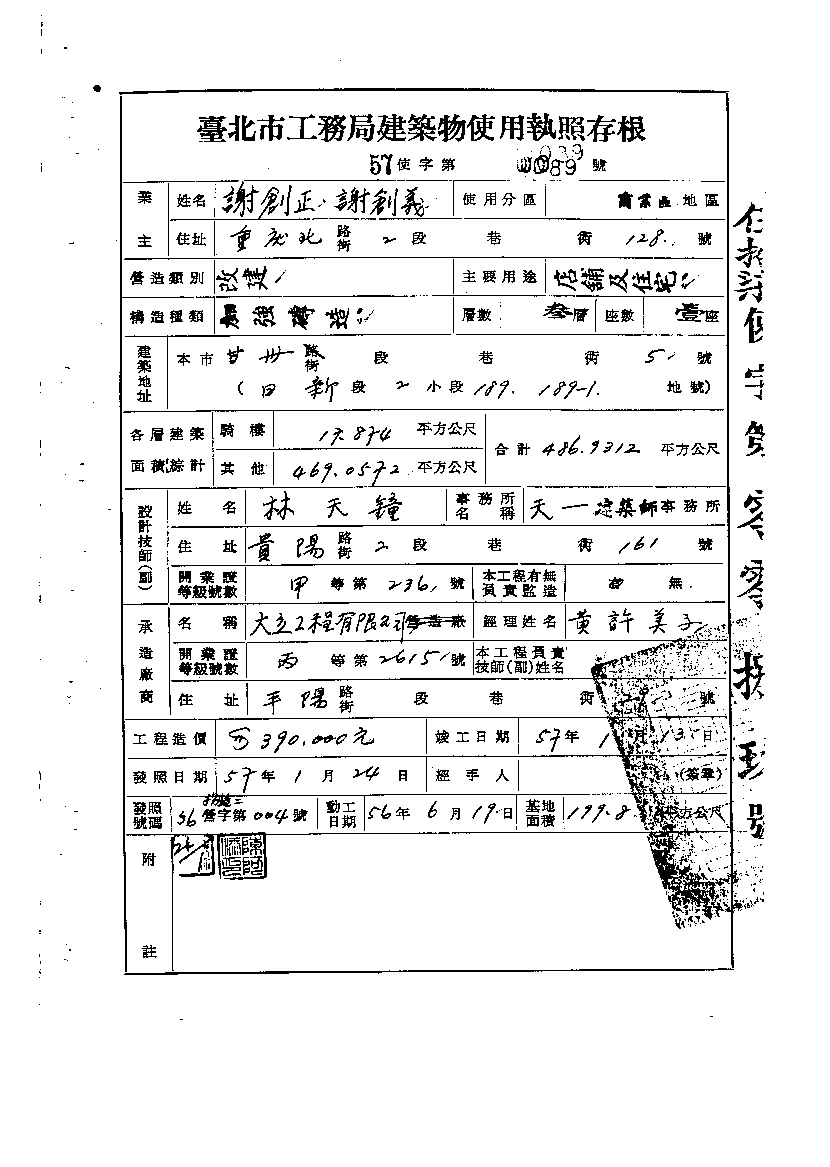 臺北市工務局建築物使用執照存根
57使字第 0089 號
業主 姓名 謝創正、謝創義 使用分區 商業區 地區
住址 重慶北 路街 2 段 巷 街 128 號
營造類別 改建 主要用途 店舖及住宅
構造種類 加強磚造 層數 叁層 座數 壹座
建築地址 本市 甘州 路街 段 巷 街 51 號
(日新 段 2 小段 189. 189-1. 地號)
各層建築面積綜計 騎樓 17.874 平方公尺 合計 486.9312 平方公尺
其他 469.0572 平方公尺
設計技師(副) 姓名 林天鐘 事務所名稱 天一建築師事務所
住址 貴陽 路街 2 段 巷 街 161 號
開業證等級號數 甲 等第 236 號 本工程有無負責監造 無
承造廠商 名稱 大立工程有限公司營造廠 經理姓名 黃許美子
開業證等級號數 丙 等第 2615 號 本工程負責技師(副)姓名
住址 平陽 路街 段 巷 街 號
工程造價 390.000元 竣工日期 57年 1月 13日
發照日期 57年 1月 24日 經手人 (簽章)
發照號碼 56 營字第 004 號 動工日期 56年 6月 19日 基地面積 199.8 平方公尺
附註